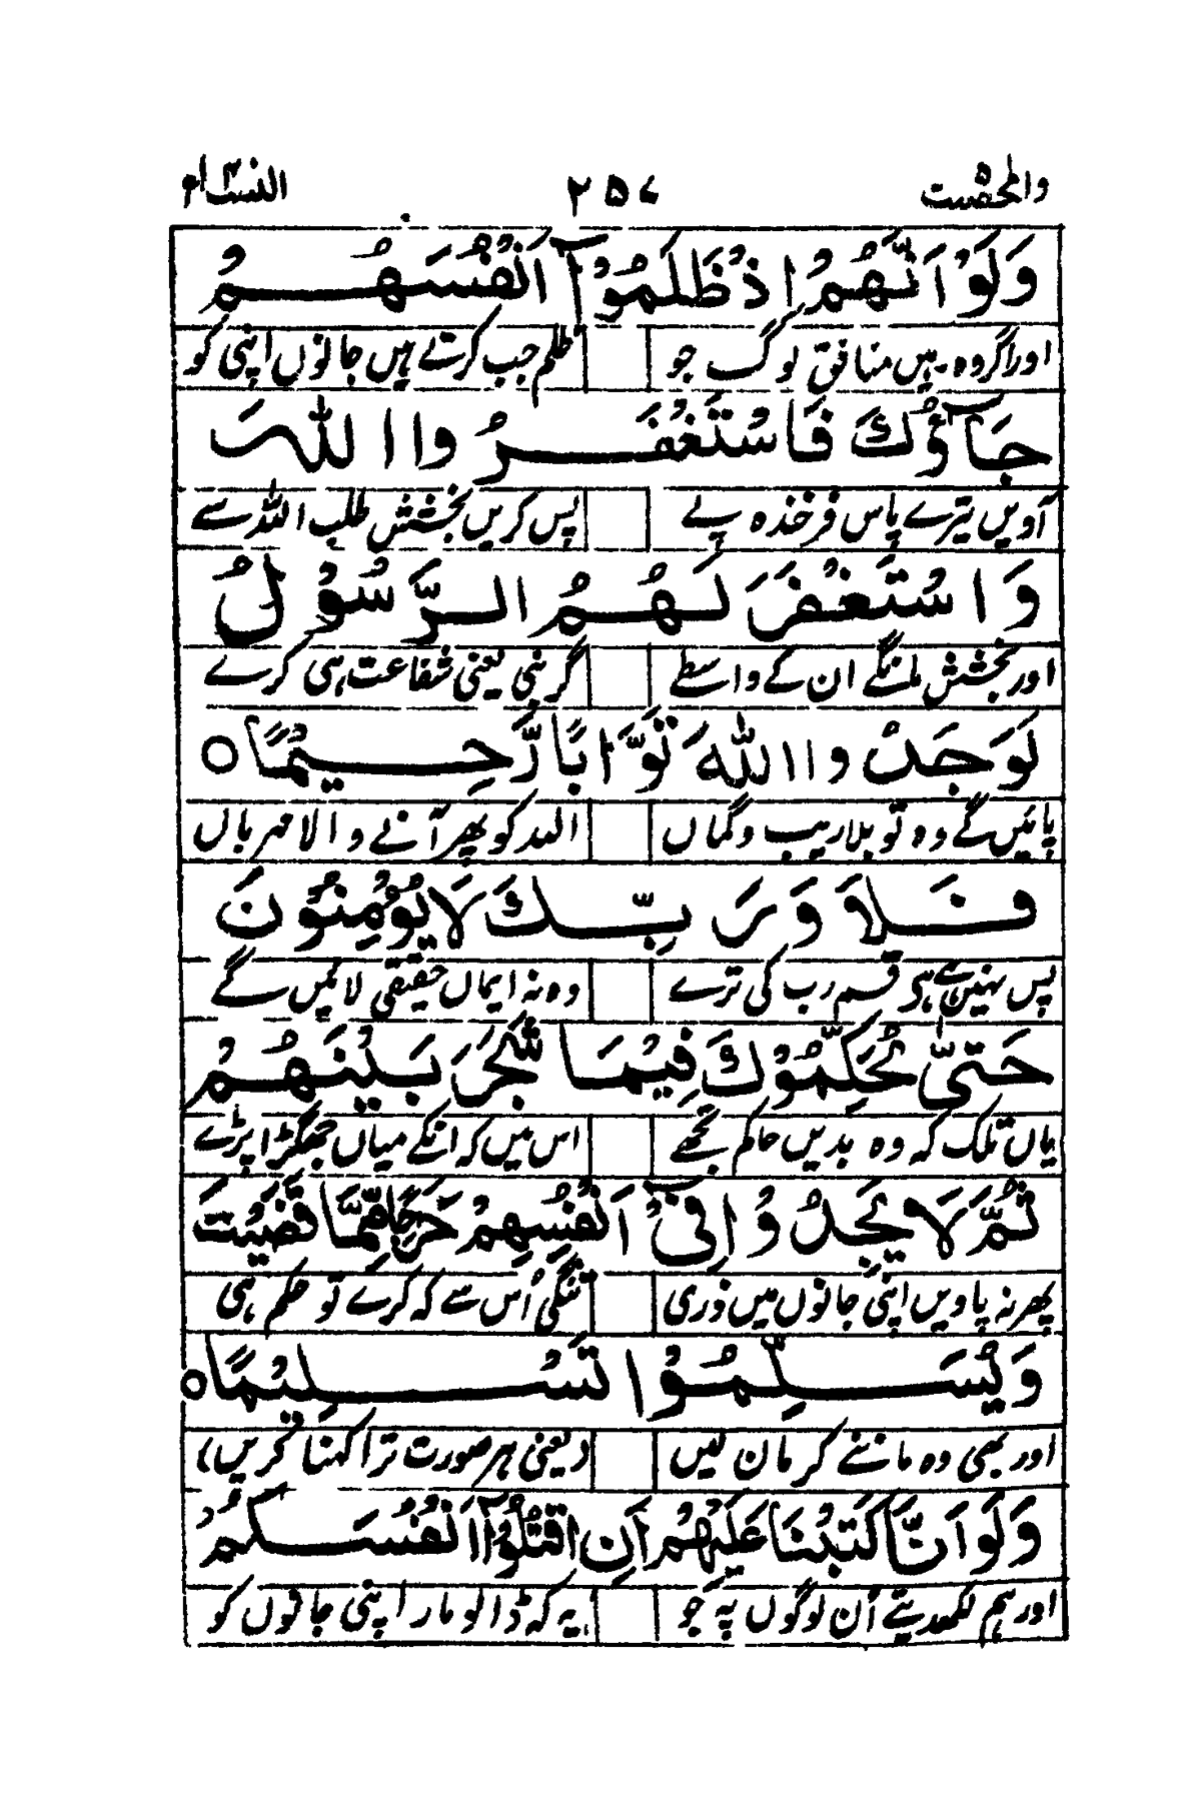 والمحصنت ۵ ۲۵۷ النساء ۴
وَلَوْ اَنَّهُمْ اِذْ ظَّلَمُوْۤا اَنْفُسَهُمْ
اور اگر وہ ہیں منافق لوگ جو ظلم جب کرتے ہیں جانوں اپنی کو
جَآءُوْكَ فَاسْتَغْفَرُوا اللّٰهَ
آویں تیرے پاس فرخندہ پے پس کریں بخشش طلب اللہ سے
وَاسْتَغْفَرَ لَهُمُ الرَّسُوْلُ
اور بخشش مانگے ان کے واسطے گر نبی یعنی شفاعت ہی کرے
لَوَجَدُوا اللّٰهَ تَوَّابًا رَّحِيْمًا ○
پائیں گے وہ تو بلا ریب و گماں اللہ کو پھر آنے والا مہرباں
فَلَا وَرَبِّكَ لَا يُؤْمِنُوْنَ
پس نہیں ہے ہی قسم رب کی ترے وہ نہ ایماں حقیقی لائیں گے
حَتّٰى يُحَكِّمُوْكَ فِيْمَا شَجَرَ بَيْنَهُمْ
یاں تلک کہ وہ بدیں حاکم تجھے اس میں کہ انکے میاں جھگڑا پڑے
ثُمَّ لَا يَجِدُوْا فِيْۤ اَنْفُسِهِمْ حَرَجًا مِّمَّا قَضَيْتَ
پھر نہ پاویں اپنی جانوں میں ذری تنگی اُس سے کہ کرے تو حکم ہی
وَيُسَلِّمُوْا تَسْلِيْمًا ○
اور بھی وہ ماننے کر مان لیں (یعنی ہر صورت ترا کہنا کریں)
وَلَوْ اَنَّا كَتَبْنَا عَلَيْهِمْ اَنِ اقْتُلُوْۤا اَنْفُسَكُمْ
اور ہم لکھدیتے اُن لوگوں پہ جو یہ کہ ڈالو مار اپنی جانوں کو